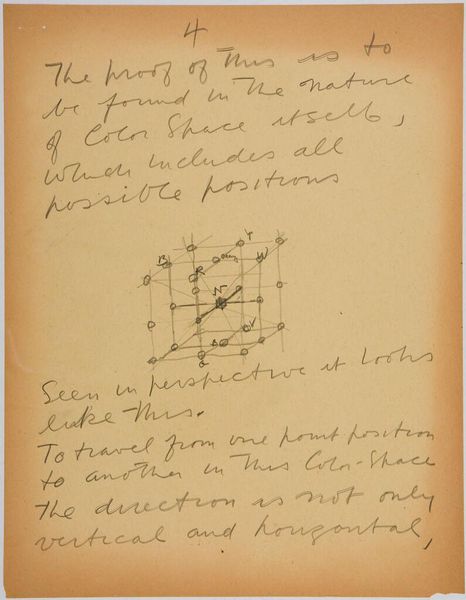 4
The proof of This is to
be found in The nature
of Color Space itself,
which includes all
possible positions
B
Y
R
W
N
V
G
Seen in perspective it looks
like This.
To travel from one point position
to another in This Color-Space
The direction is not only
vertical and horizontal,